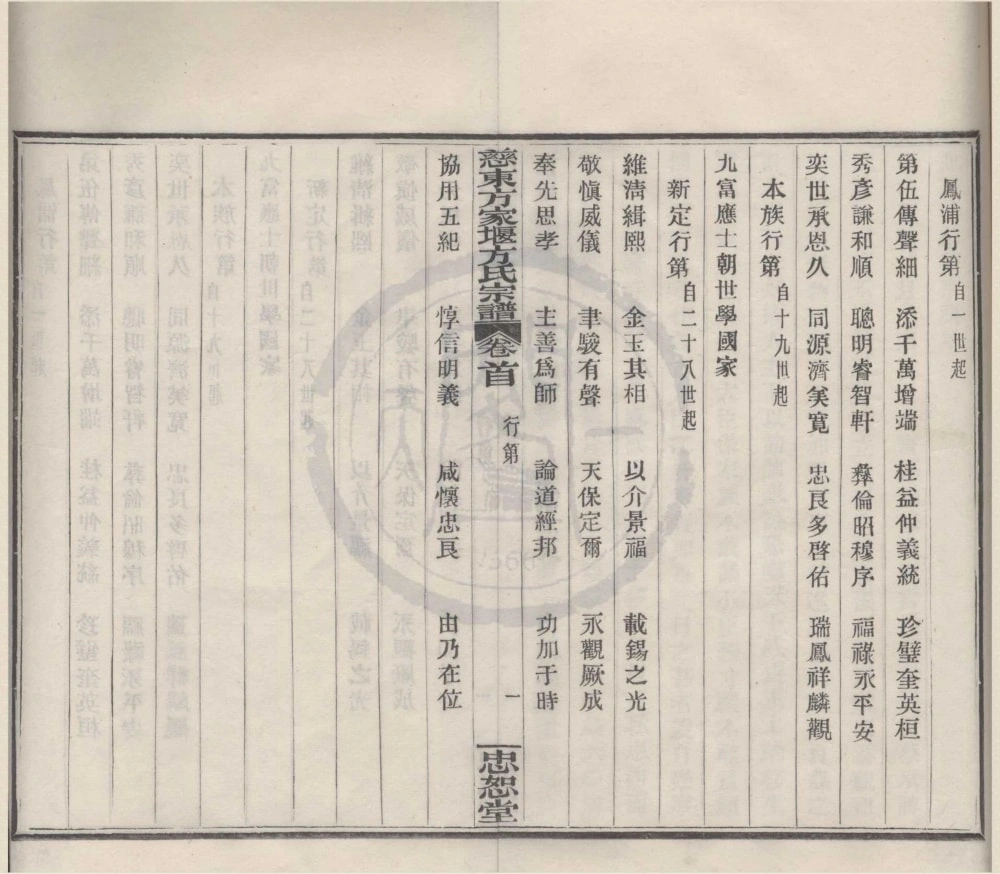 鳳浦行第自一世起
第伍傳聲細　添千萬增端　桂益仲義統　珍璧奎英桓
秀彥謙和順　聰明睿智軒　彝倫昭穆序　福祿永平安
奕世承恩久　同源濟美寬　忠良多啓佑　瑞鳳祥麟觀
本族行第自十九世起
九富應士朝世學國家
新定行第自二十八世起
維淸緝熙　金玉其相　以介景福　載錫之光
敬愼威儀　聿駿有聲　天保定爾　永觀厥成
奉先思孝　主善爲師　論道經邦　功加于時
慈東方家堰方氏宗譜　卷首　行第　一　忠恕堂
協用五紀　惇信明義　咸懷忠良　由乃在位